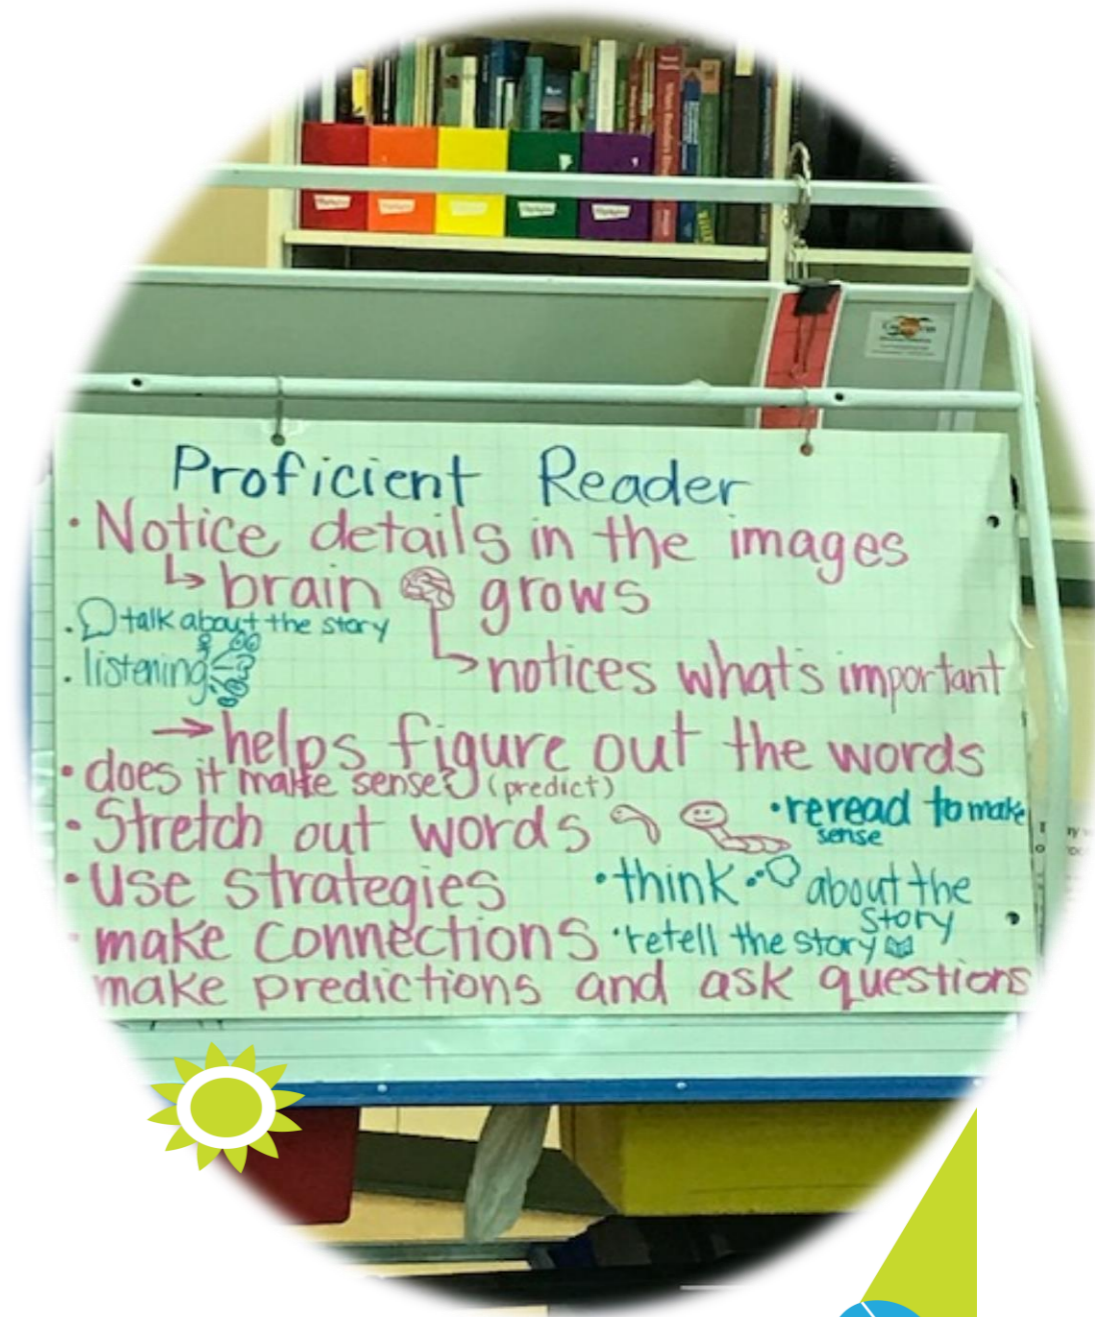 Proficient Reader
• Notice details in the images
↳ brain grows
• talk about the story
• listening
↳ notices what's important
→ helps figure out the words
• does it make sense? (predict)
• Stretch out words
• reread to make
sense
• use strategies
• think about the
story
• make connections
• retell the story
make predictions and ask questions